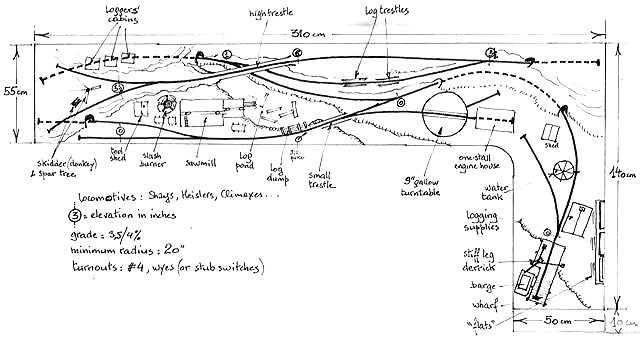 loggers'
cabins
high trestle
log trestles
310 cm
55 cm
140 cm
skidder (donkey)
& spar tree
tool
shed
slash
burner
sawmill
log
pond
log
dump
jill
poke
small
trestle
9" gallow
turntable
one-stall
engine house
water
tank
logging
supplies
stiff leg
derrick
barge
wharf
"flats"
50 cm
10 cm
locomotives : Shays, Heislers, Climaxes...
3 = elevation in inches
grade : 3,5/4%
minimum radius : 20"
turnouts : #4, wyes (or stub switches)